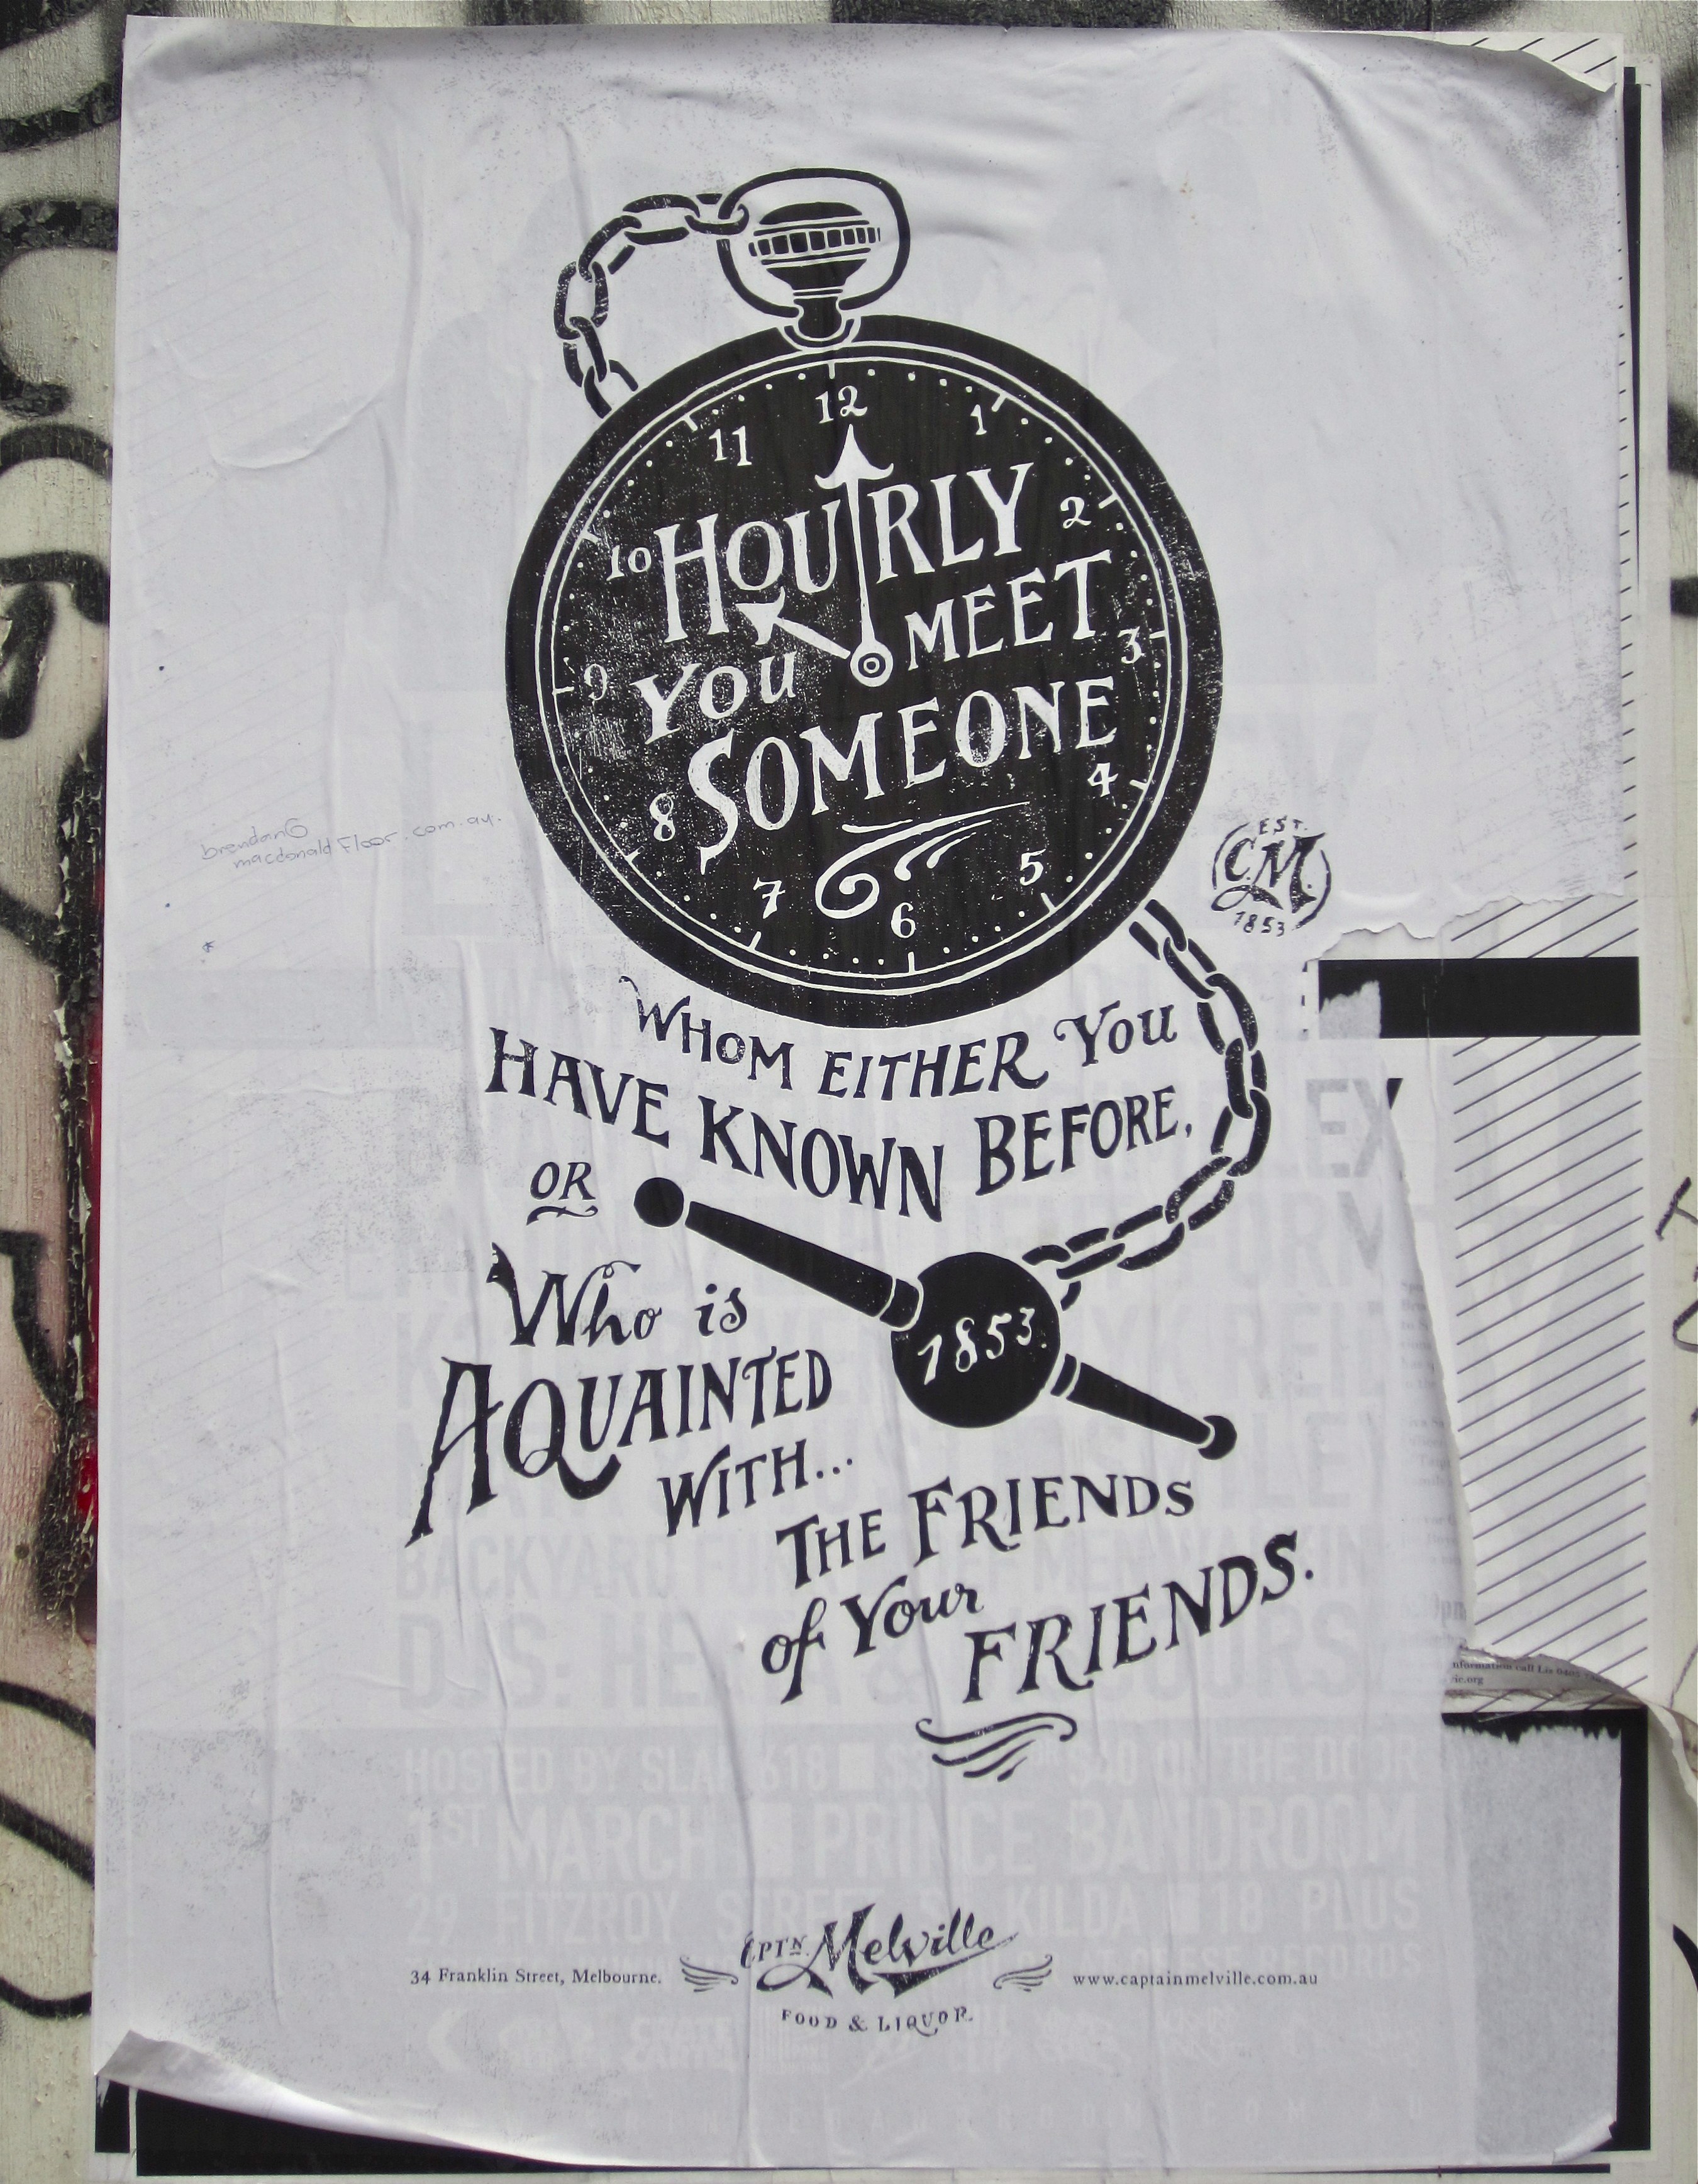 12
11
1
10
2
HOURLY
MEET
9
3
YOU
SOMEONE
8
4
7
5
6
EST.
CM
1853
WHOM EITHER You
HAVE KNOWN BEFORE,
OR
Who is
1853.
AQUAINTED
WITH...
THE FRIENDS
of Your
FRIENDS.
CPTN. Melville
34 Franklin Street, Melbourne.
www.captainmelville.com.au
FOOD & LIQUOR.
brendanG
macdonald Floor.com.au.
EX
BACKYARD
HOSTED BY
$40 ON THE DOOR
1ST MARCH PRINCE BANDROOM
29 FITZROY STREET KILDA 18 PLUS